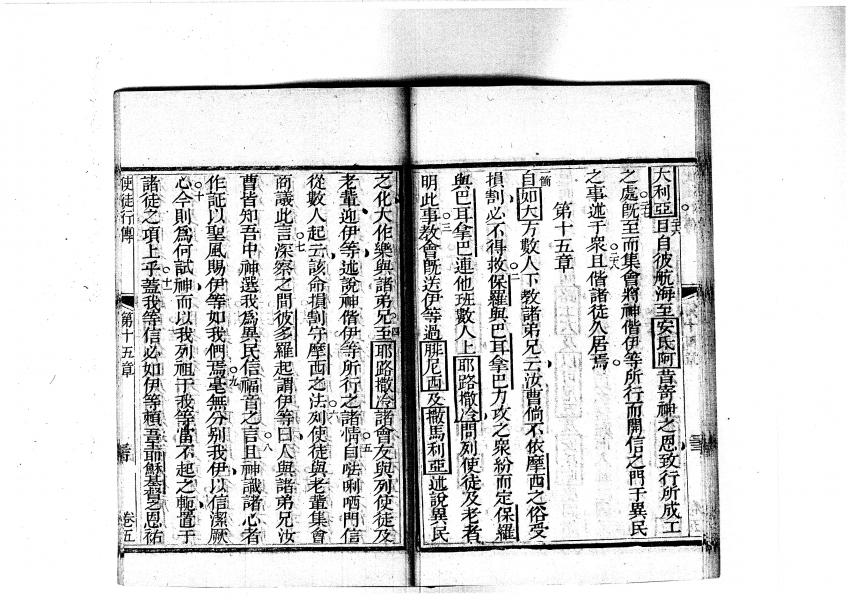 大利亞二六曰自彼航海至安氏阿昔寄神之恩致行所成工
之處二七旣至而集會將神偕伊等所行而開信之門于異民
之事述于衆二八且偕諸徒久居焉
第十五章
一節自如大方數人下敎諸弟兄云汝曹倘不依摩西之俗受
損割必不得救二保羅與巴耳拿巴力攻之衆紛而定保羅
與巴耳拿巴連他班數人上耶路撒冷問列使徒及老者
明此事三敎會旣送伊等過腓尼西及撒馬利亞述說異民
之化大作樂與諸弟兄四至耶路撒冷諸會友與列使徒及
老輩迎伊等述說神偕伊等所行之諸情五自呿唎哂門信
從數人起云該命損割守摩西之法六列使徒與老輩集會
商議此言七深察之間彼多羅起謂伊等曰人與諸弟兄汝
曹皆知吾中神選我爲異民信福音之言八且神識諸心者
作証以聖風賜伊等如我們焉九毫無分别我伊以信潔厥
心十今則爲何試神而以我列祖于我等當不起之軛置于
諸徒之項上乎十一蓋我等信必如伊等賴吾主耶穌基督之恩祐
使徒行傳
第十五章
卷五